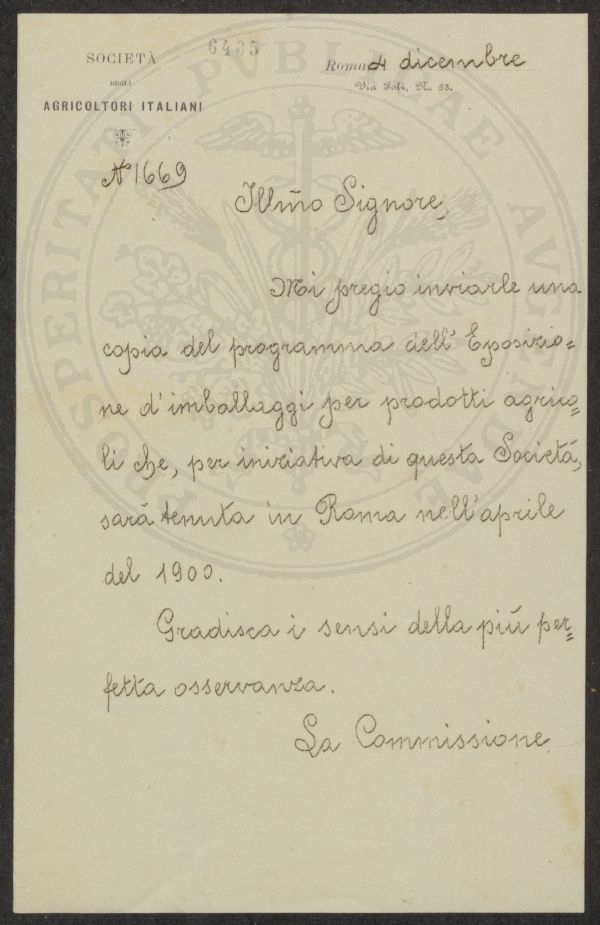 SOCIETÀ
DEGLI
AGRICOLTORI ITALIANI
6405
Roma 4 dicembre
Via Poli, N. 53.
N° 1669
Illmo Signore,
Mi pregio inviarle una
copia del programma dell' Esposizio=
ne d'imballaggi per prodotti agrico=
li che, per iniziativa di questa Società,
sarà tenuta in Roma nell'aprile
del 1900.
Gradisca i sensi della più per=
fetta osservanza.
La Commissione
PROSPERITATI PVBLICAE AVGENDAE